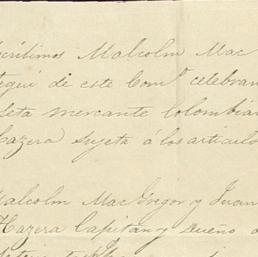 critimos Malcolm Mac
tegui de este Comº celebran
leta mercante Colombian
Cazera sujeta á los articulo
Malcolm Mac Gregor y Juan
Hazera Capitan y Dueño d